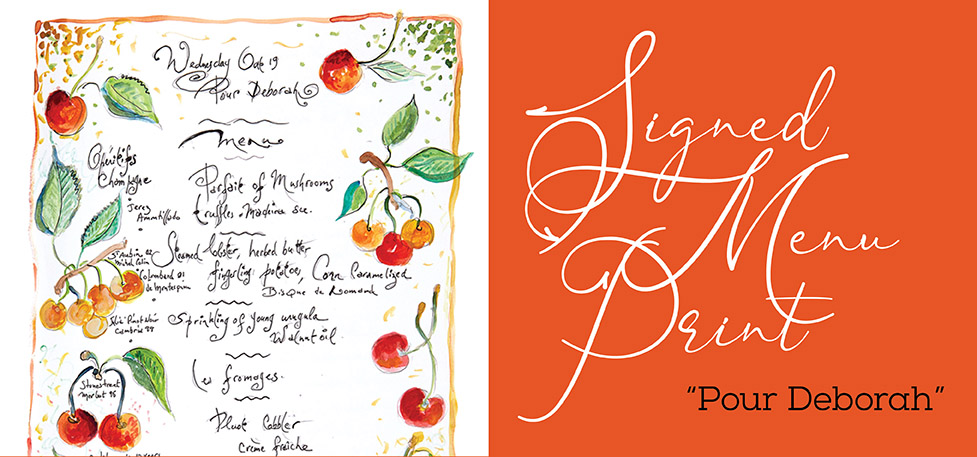 Wednesday Oct 19
Pour Deborah
menu
Apéritifs
Champagne
Jeres
Amontillado
Parfait of Mushrooms
truffles. Madeira sce.
St Aubin
Michel Colin
Colombard 01
de Montespin
Steamed lobster, herbed butter
fingerling potatoes, Corn Caramelized
Bisque de
Pinot Noir
Sprinkling of young arugula
Walnut oil
Les fromages.
Stonestreet
Merlot 95
Pluot Cobbler
crème fraîche
Signed
Menu
Print
“Pour Deborah”